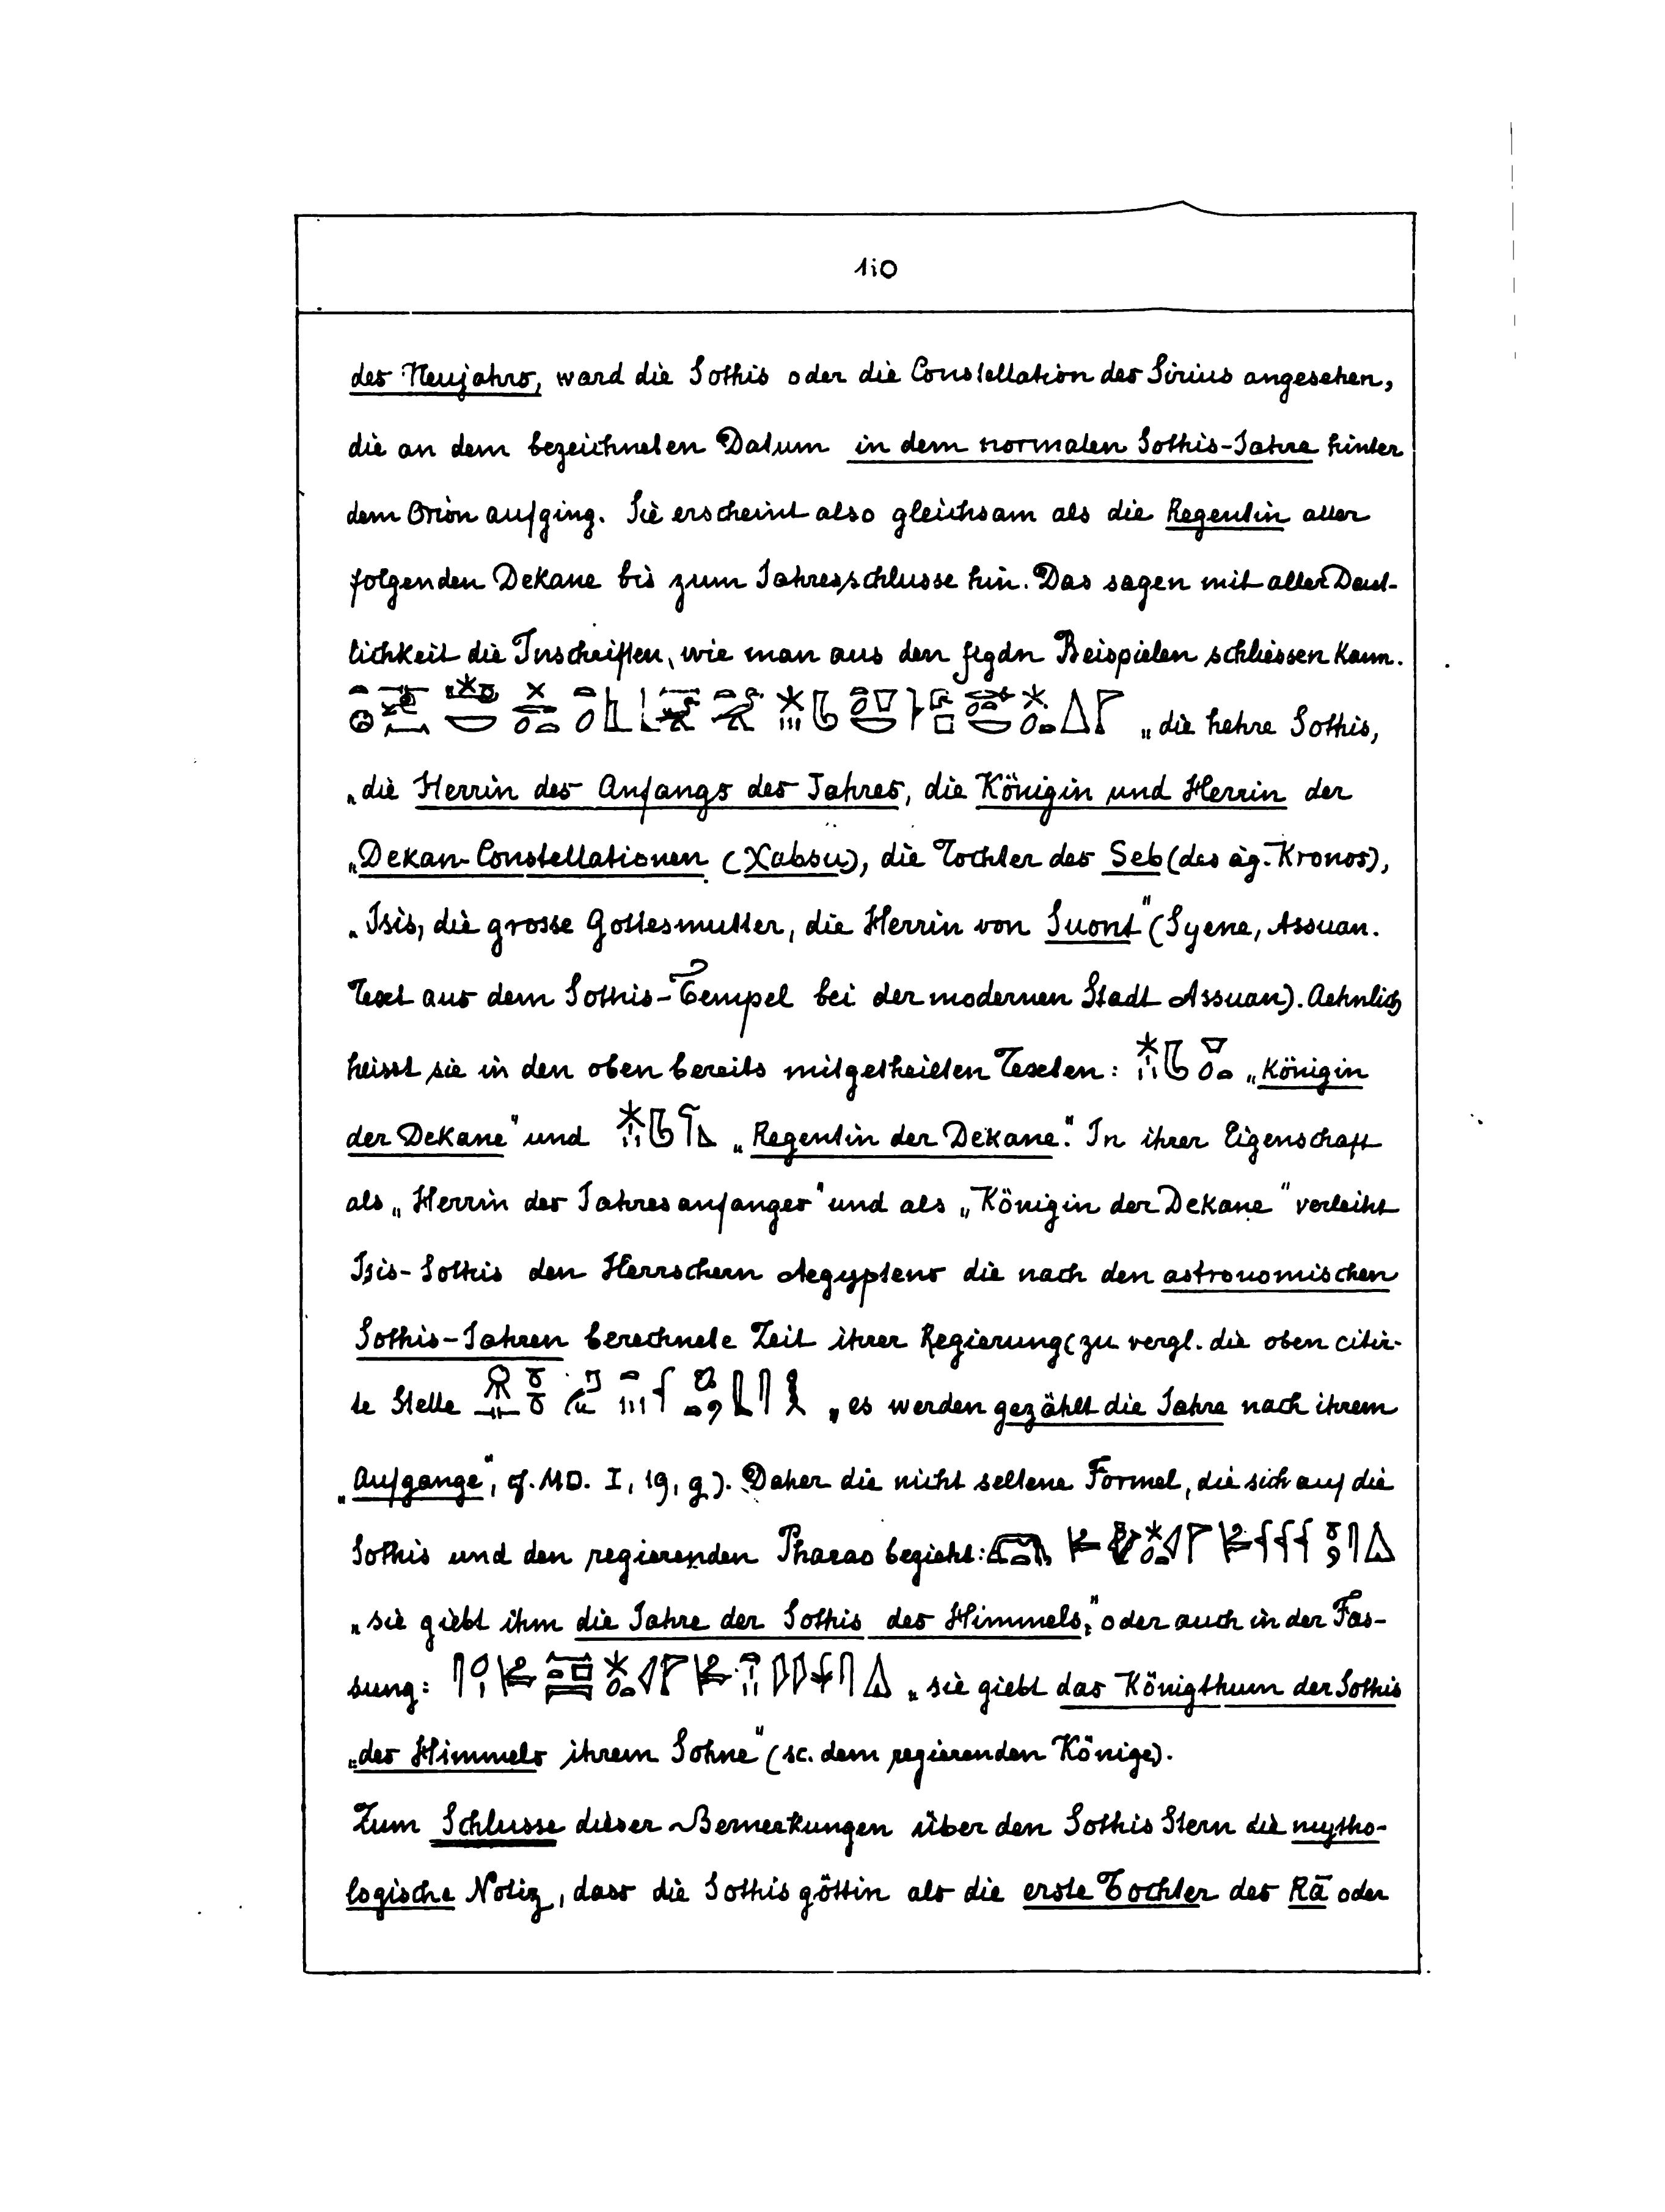 110
des Neujahrs, ward die Sothis oder die Constellation des Sirius angesehen,
die an dem bezeichneten Datum in dem normalen Sothis-Jahre hinter
dem Orion aufging. Sie erscheint also gleichsam als die Regentin aller
folgenden Dekane bis zum Jahresschlusse hin. Das sagen mit aller Deut-
lichkeit die Inschriften, wie man aus den flgdn Beispielen schliessen kann.
„die hehre Sothis,
„die Herrin des Anfangs des Jahres, die Königin und Herrin der
„Dekan-Constellationen (Xabsu), die Tochter des Seb (des äg. Kronos),
„Isis, die grosse Gottesmutter, die Herrin von Suont" (Syene, Assuan.
Text aus dem Sothis-Tempel bei der modernen Stadt Assuan). Aehnlich
heisst sie in den oben bereits mitgetheilten Texten: „Königin
der Dekane" und „Regentin der Dekane." In ihrer Eigenschaft
als „Herrin des Jahresanfanges" und als „Königin der Dekane" verleiht
Isis-Sothis den Herrschern Aegyptens die nach den astronomischen
Sothis-Jahren berechnete Zeit ihrer Regierung (zu vergl. die oben citir-
te Stelle „es werden gezählt die Jahre nach ihrem
„Aufgange", cf. MD. I, 19, g). Daher die nicht seltene Formel, die sich auf die
Sothis und den regierenden Pharao bezieht:
„sie giebt ihm die Jahre der Sothis des Himmels," oder auch in der Fas-
sung: „sie giebt das Königthum der Sothis
„des Himmels ihrem Sohne" (sc. dem regierenden Könige).
Zum Schlusse dieser Bemerkungen über den Sothis Stern die mytho-
logische Notiz, dass die Sothis göttin als die erste Tochter des Rā oder